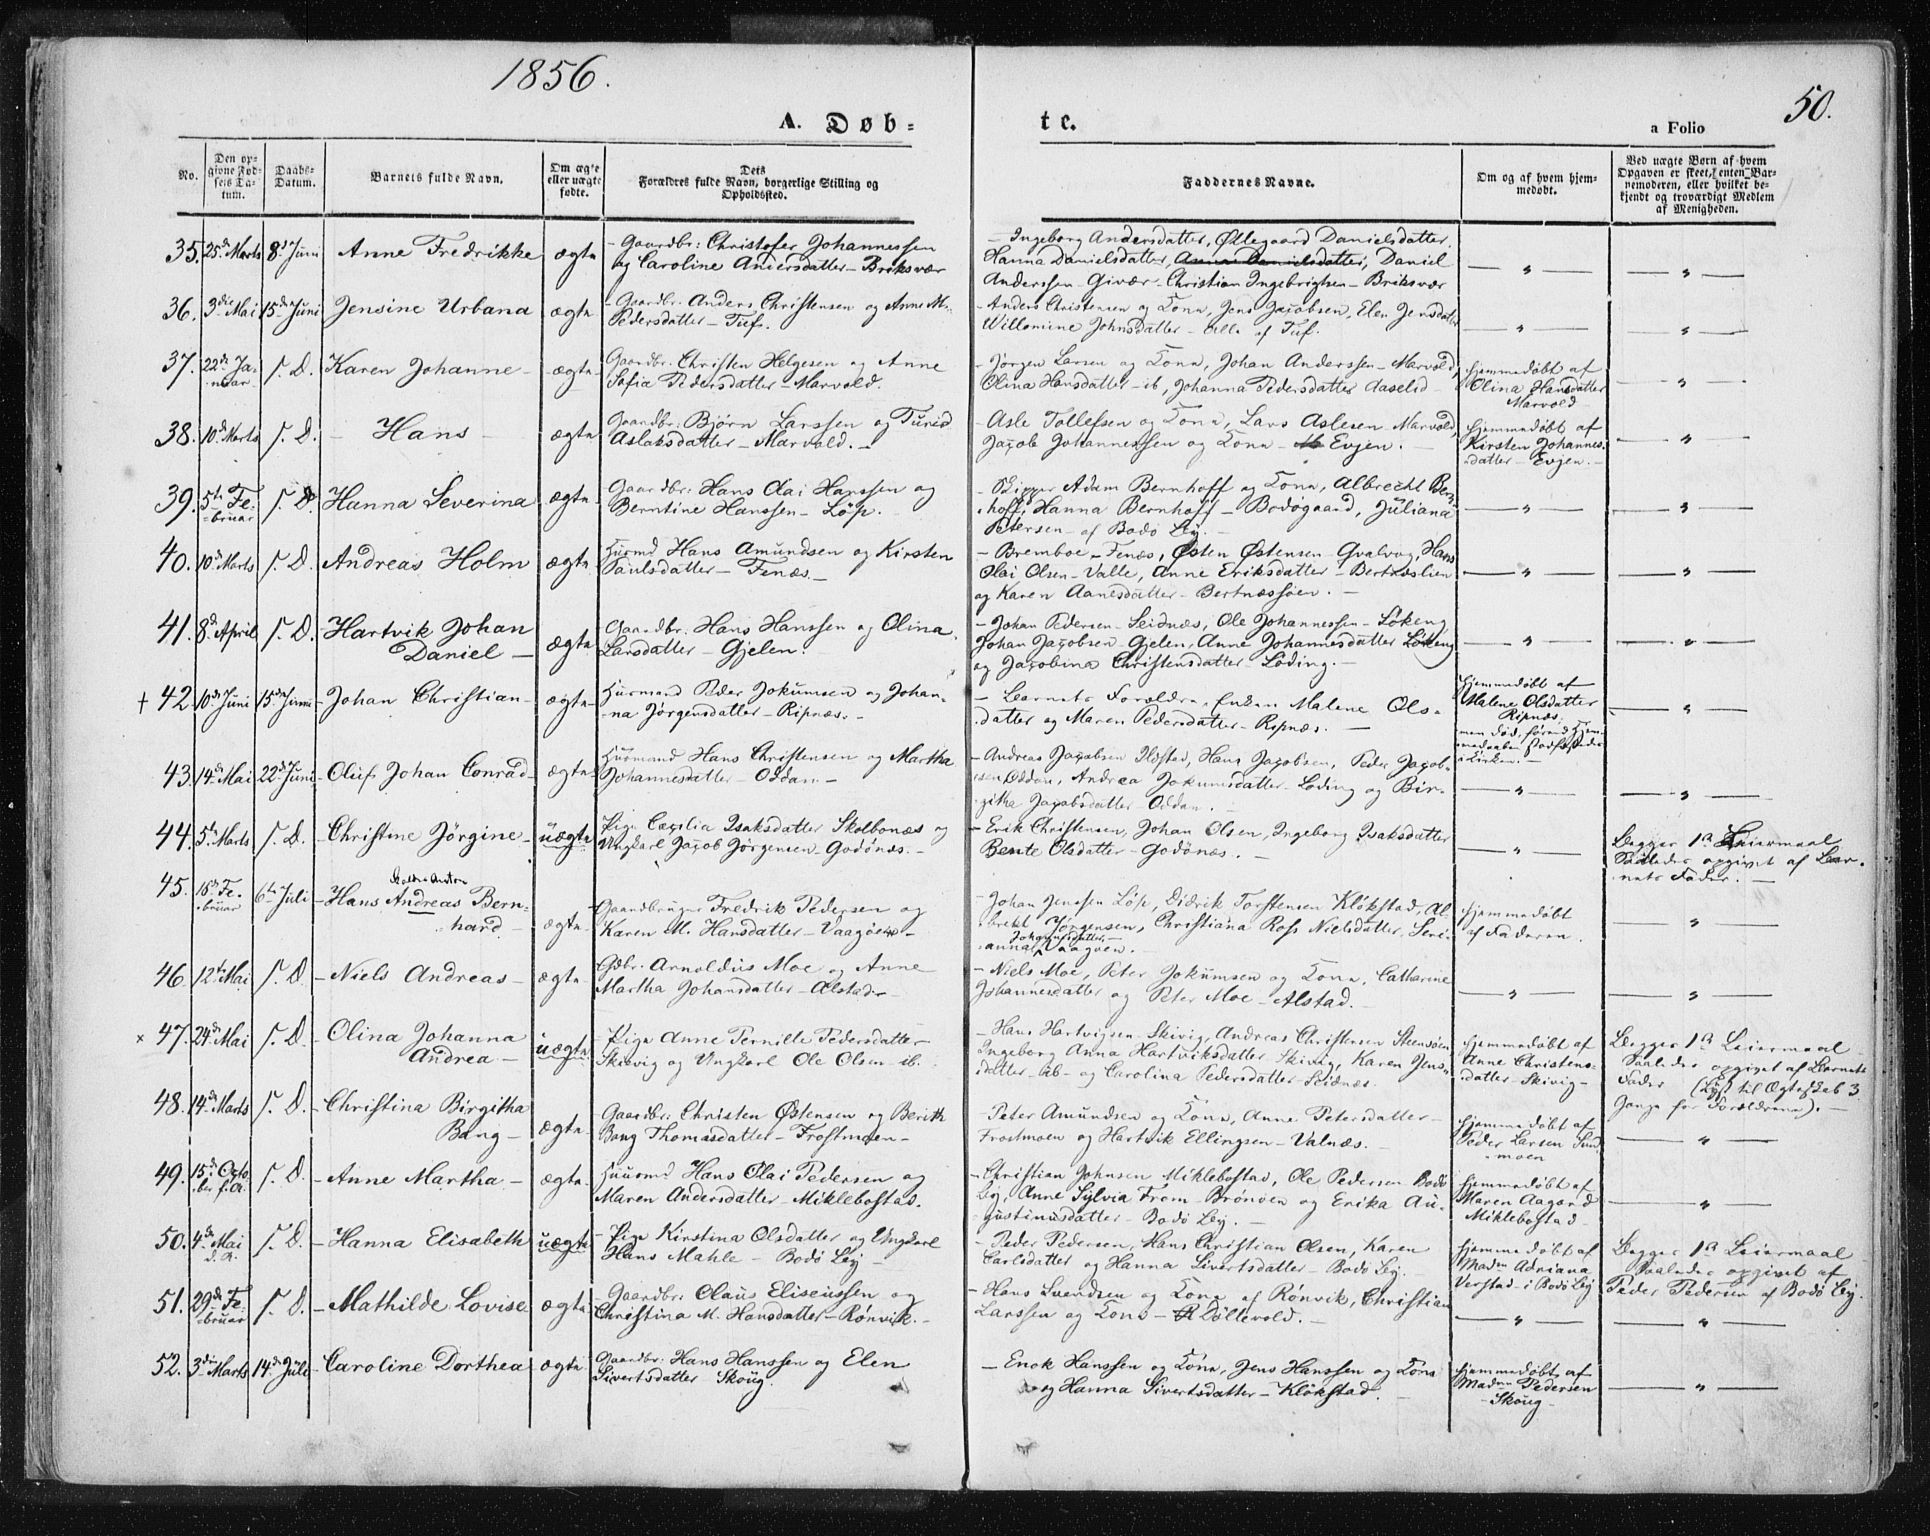 1856.
50.
A. Døb=
te.
a Folio
No.
Den op-
givne Fød-
sels Da-
tum.
Daabs-
Datum.
Barnets fulde Navn.
Om ægte
eller uægte
fødte.
Dets
Forældres fulde Navn, borgerlige Stilling og
Opholdssted.
Faddernes Navne.
Om og af hvem hjem-
medøbt.
Ved uægte Børn af hvem
Opgaven er skeet, enten Bar-
nemoderen, eller hvilket be-
kjendt og troværdigt Medlem
af Menigheden.
35. 25de Marts 8de Juni Anne Fredrikke ægte
Gaardbr: Christofer Johannessen
og Caroline Andersdatter - Briksvær
- Ingeborg Andersdatter, Øllegaard Danielsdatter
Hanna Danielsdatter, Anne Danielsdatter, Daniel
Anderssen - Givær - Christian Ingebrigtsen - Briksvær
36. 3die Mai 15de Juni Jensine Urbana ægte
Gaardbr: Anders Christensen og Anne M.
Pedersdatter - Tuf.
- Anders Christensen og Kona, Jens Jacobsen, Elen Jensdatter
Willomine Johnsdatter - Alle af Tuf.
37. 22de Ja-
nuar s. D. Karen Johanne - ægte
Gaardbr: Christen Helgesen og Anne
Sofia Pedersdatter - Marvold.
- Jørgen Larsen og Kona, Johan Anderssen - Marvold,
Olina Hansdatter - ib, Johanna Pedersdatter Aaselid
Hjemmedøbt af
Olina Hansdatter
Marvold
38. 10de Marts s. D. - Hans - ægte
Gaardbr: Bjørn Larssen og Turid
Aslaksdatter - Marvold. -
- Asle Tollefsen og Kona, Lars Aslesen - Marvold,
Jacob Johannessen og Kona - ib Evjen. -
Hjemmedøbt af
Kirsten Johannes-
datter - Evjen. -
39. 5te Fe-
bruar s. D. Hanna Severina ægte
Gaardbr: Hans Olai Hanssen og
Berntine Hanssen - Løp.
- Skipper Adam Bernhoff og Kona, Albrecht Bern-
hoff, Hanna Bernhoff - Bodøgaard, Juliana
Petersen - af Bodø By. -
40. 10de Marts s. D. Andreas Holm ægte
Husmd Hans Amundsen og Kirsten
Paulsdatter - Fenæs -
- Bremboe - Fenæs, Østen Østensen - Qvalvog, Hans
Olai Olsen - Valle, Anne Eriksdatter - Bertnæslien
og Karen Aanesdatter - Bertnæssøen. -
41. 8de April s. D. Hartvik Johan
Daniel - ægte
Gaardbr: Hans Hanssen og Olina
Larsdatter - Gjelen.
- Johan Pedersen - Seidnæs, Ole Johannessen - Løkeng
Johan Jacobsen Gjelen, Anne Johannesdatter Løkeng
og Jacobina Christensdatter - Løding. -
+ 42. 10de Juni 15de Juni Johan Christian - ægte
Husmand Peder Jokumsen og Johan-
na Jørgensdatter - Ripnæs. -
- Barnets Forældre, Enken Malene Ols-
datter og Maren Pedersdatter - Ripnæs. -
Hjemmedøbt af
Malene Olsdatter
Ripnæs.
men død, førend Hjem-
medaaben stadfæstedes
i Kirken. -
43. 14de Mai 22de Juni Oluf Johan Conrad - ægte
Husmand Hans Christensen og Martha
Johannesdatter - Oddan -
- Andreas Jacobsen Ildstad, Hans Jacobsen, Peder Jacob-
sen, Oddan, Andrea Jokumsdatter - Løding og Bir-
githa Jacobsdatter - Oddan. -
44. 5te Marts s. D. Christine Jørgine - uægte
Pige Cæcilia Isaksdatter Skolbonæs og
Ungkarl Jacob Jørgensen - Godønæs. -
- Erik Christensen, Johan Olsen, Ingeborg Isaksdatter
Bente Olsdatter - Godønæs. -
Begges 1ste Leiermaal
Saaledes opgivet af Bar-
nets Fader. -
45. 16de Fe-
bruar 6te Juli - Hans Andreas Bern-
hard - ægte
Gaardbruger Fredrik Pedersen og
Karen M. Hansdatter - Vaagøen -
- Johan Jenssen Løp, Didrik Torstensen Kløkstad, Al-
brekt Jørgensen, Christiana Ross Nielsdatter, Seri-
anna Johannesdatter Vaagøen. -
Hjemmedøbt
af Faderen.
46. 12te Mai s. D. - Niels Andreas - ægte
Gdbr: Arnoldus Moe og Anne
Martha Johansdatter - Alstad -
- Niels Moe, Peter Jokumsen og Kona, Catharine
Johannesdatter og Peter Moe - Alstad. -
× 47. 24de Mai s. D. - Olina Johanna
Andrea - uægte
- Pige Anne Pernille Pedersdatter -
Skivig og Ungkarl Ole Olsen - ib.
- Hans Hartvigsen - Skivig, Andreas Christensen Steensøen
Ingeborg Anna Hartviksdatter Skivig, Karen Jens-
datter - ib - og Carolina Pedersdatter - Seidnæs.
Hjemmedøbt af
Anne Christens-
datter - Skivig -
Begges 1ste Leiermaal
Saaledes opgivet af Barnets
Fader (Lyst til Ægteskab 3
Gange for Forældrene). -
48. 14de Marts s. D. - Christina Birgitha
Bang - ægte
Gaardbr: Christen Østensen og Berith
Bang Thomasdatter - Frostmoen -
- Peter Amundsen og Kona, Anne Petersdatter -
Frostmoen og Hartvik Ellingsen - Valnæs. -
Hjemmedøbt af
Peder Larsen Sund-
moen
49. 15de Octo-
ber f. A. s. D. - Anne Martha - ægte
Husmd Hans Olai Pedersen og
Maren Andersdatter - Miklebostad.
- Christian Johnsen Miklebostad, Ole Pedersen Bodø
By, Anne Sylvia Frem - Brønøen og Erika Au-
gustinusdatter - Bodø By. -
Hjemmedøbt af
Maren Aagard
Miklebostad -
50. 4de Mai
d. A. s. D. - Hanna Elisabeth uægte
- Pige Kirstina Olsdatter og Ungkarl
Hans Mahle - Bodø By -
- Peder Pedersen, Hans Christian Olsen, Karen
Carlsdatter og Hanna Sivertsdatter - Bodø By. -
Hjemmedøbt af
Madm Adriana
Verstad - i Bodø By
Begges 1ste Leiermaal
Saaledes opgivet af
Peder Pedersen af Bodø By.
51. 29de Fe-
bruar s. D. - Mathilde Lovise ægte
- Gaardbr: Claus Eliseussen og
Christina M. Hansdatter - Rønvik. -
- Hans Svendsen og Kona af Rønvik, Christian
Larssen og Kona - Bøllevold. -
52. 3die Marts 14de Juli - Caroline Dorthea ægte
Gaardbr: Hans Hanssen og Elen
Sivertsdatter Skoug.
- Enok Hanssen og Kona, Jens Hanssen og Kona
og Hanna Sivertsdatter - Kløkstad.
Hjemmedøbt af
Madm Pedersen
- Skoug -